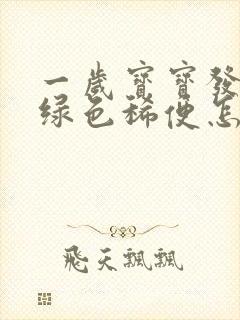 一歲寳寳發
綠色稀便怎
飛天飄飄